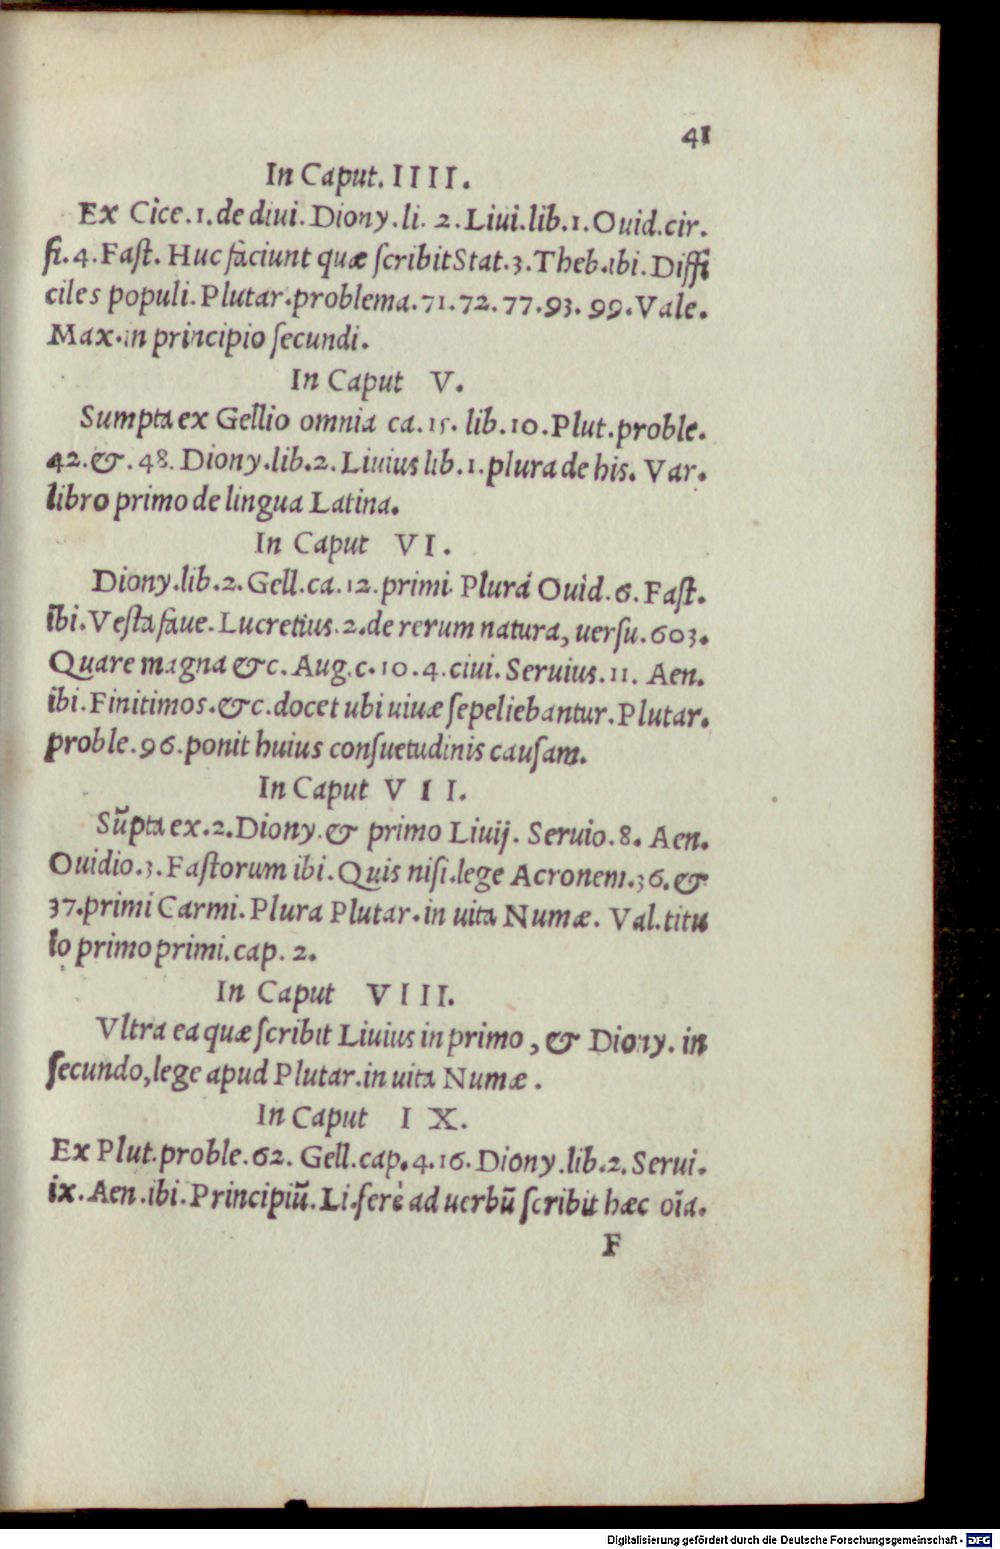 41
In Caput. IIII.
Ex Cice.1.de diui.Diony.li. 2.Liui.lib.1.Ouid.cir.
ſi.4.Faſt. Huc faciunt quæ ſcribit Stat.3.Theb.ibi.Diffi
ciles populi.Plutar.problema.71.72.77.93.99.Vale.
Max.in principio ſecundi.
In Caput V.
Sumpta ex Gellio omnia ca.15. lib.10.Plut.proble.
42.&.48. Diony.lib.2.Liuius lib.1.plura de his. Var.
libro primo de lingua Latina.
In Caput VI.
Diony.lib.2.Gell.ca.12.primi Plura Ouid.6.Faſt.
ibi.Veſta faue.Lucretius.2.de rerum natura, uerſu.603.
Quare magna &c. Aug.c.10.4.ciui.Seruius.11. Aen.
ibi.Finitimos.&c.docet ubi uiuæ ſepeliebantur.Plutar.
proble.96.ponit huius conſuetudinis cauſam.
In Caput VII.
Sūpta ex.2.Diony.& primo Liuij. Seruio.8. Aen.
Ouidio.3.Faſtorum ibi.Quis niſi.lege Acronem.36.&
37.primi Carmi.Plura Plutar.in uita Numæ. Val.titu
lo primo primi.cap.2.
In Caput VIII.
Vltra ea quæ ſcribit Liuius in primo, & Diony. in
ſecundo, lege apud Plutar.in uita Numæ.
In Caput IX.
Ex Plut.proble.62. Gell.cap.4.16.Diony.lib.2.Serui.
ix.Aen.ibi.Principiū.Li.ferè ad uerbū ſcribit hæc oīa.
F
Digitalisierung gefördert durch die Deutsche Forschungsgemeinschaft - DFG